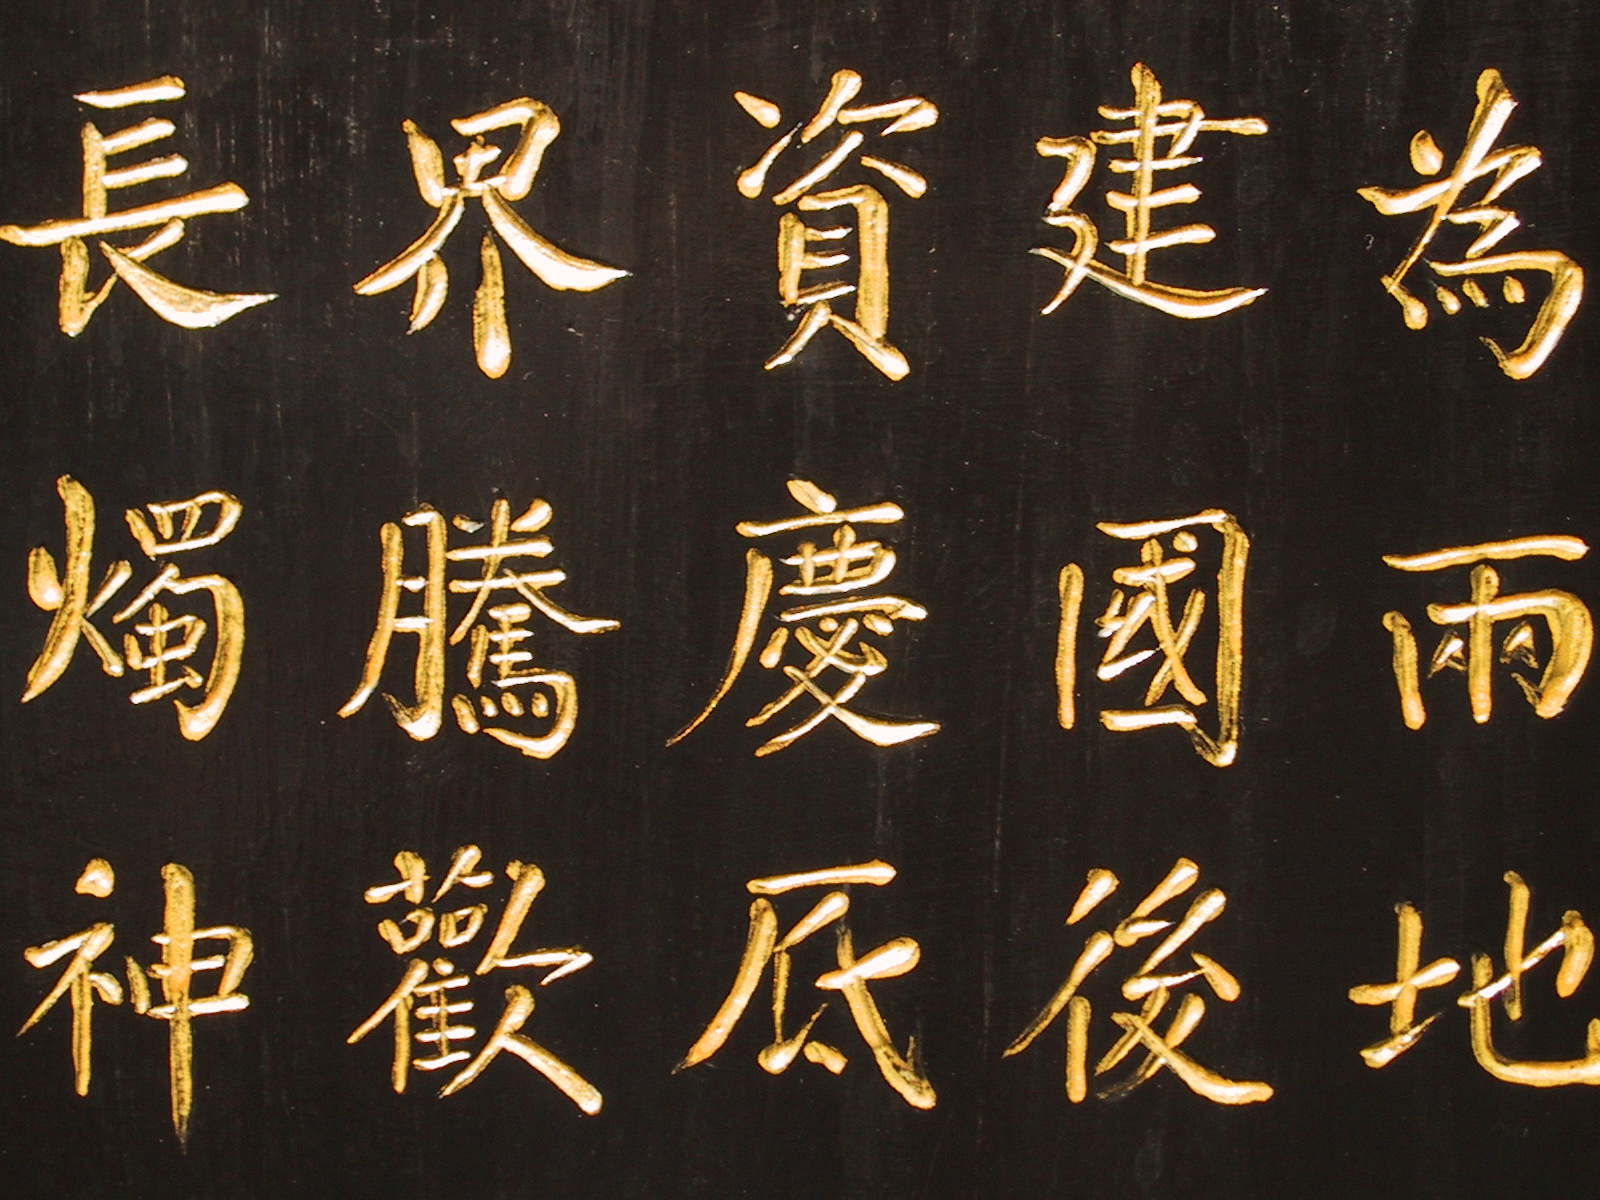 為雨地
建國後
資慶底
界騰歡
長燭神